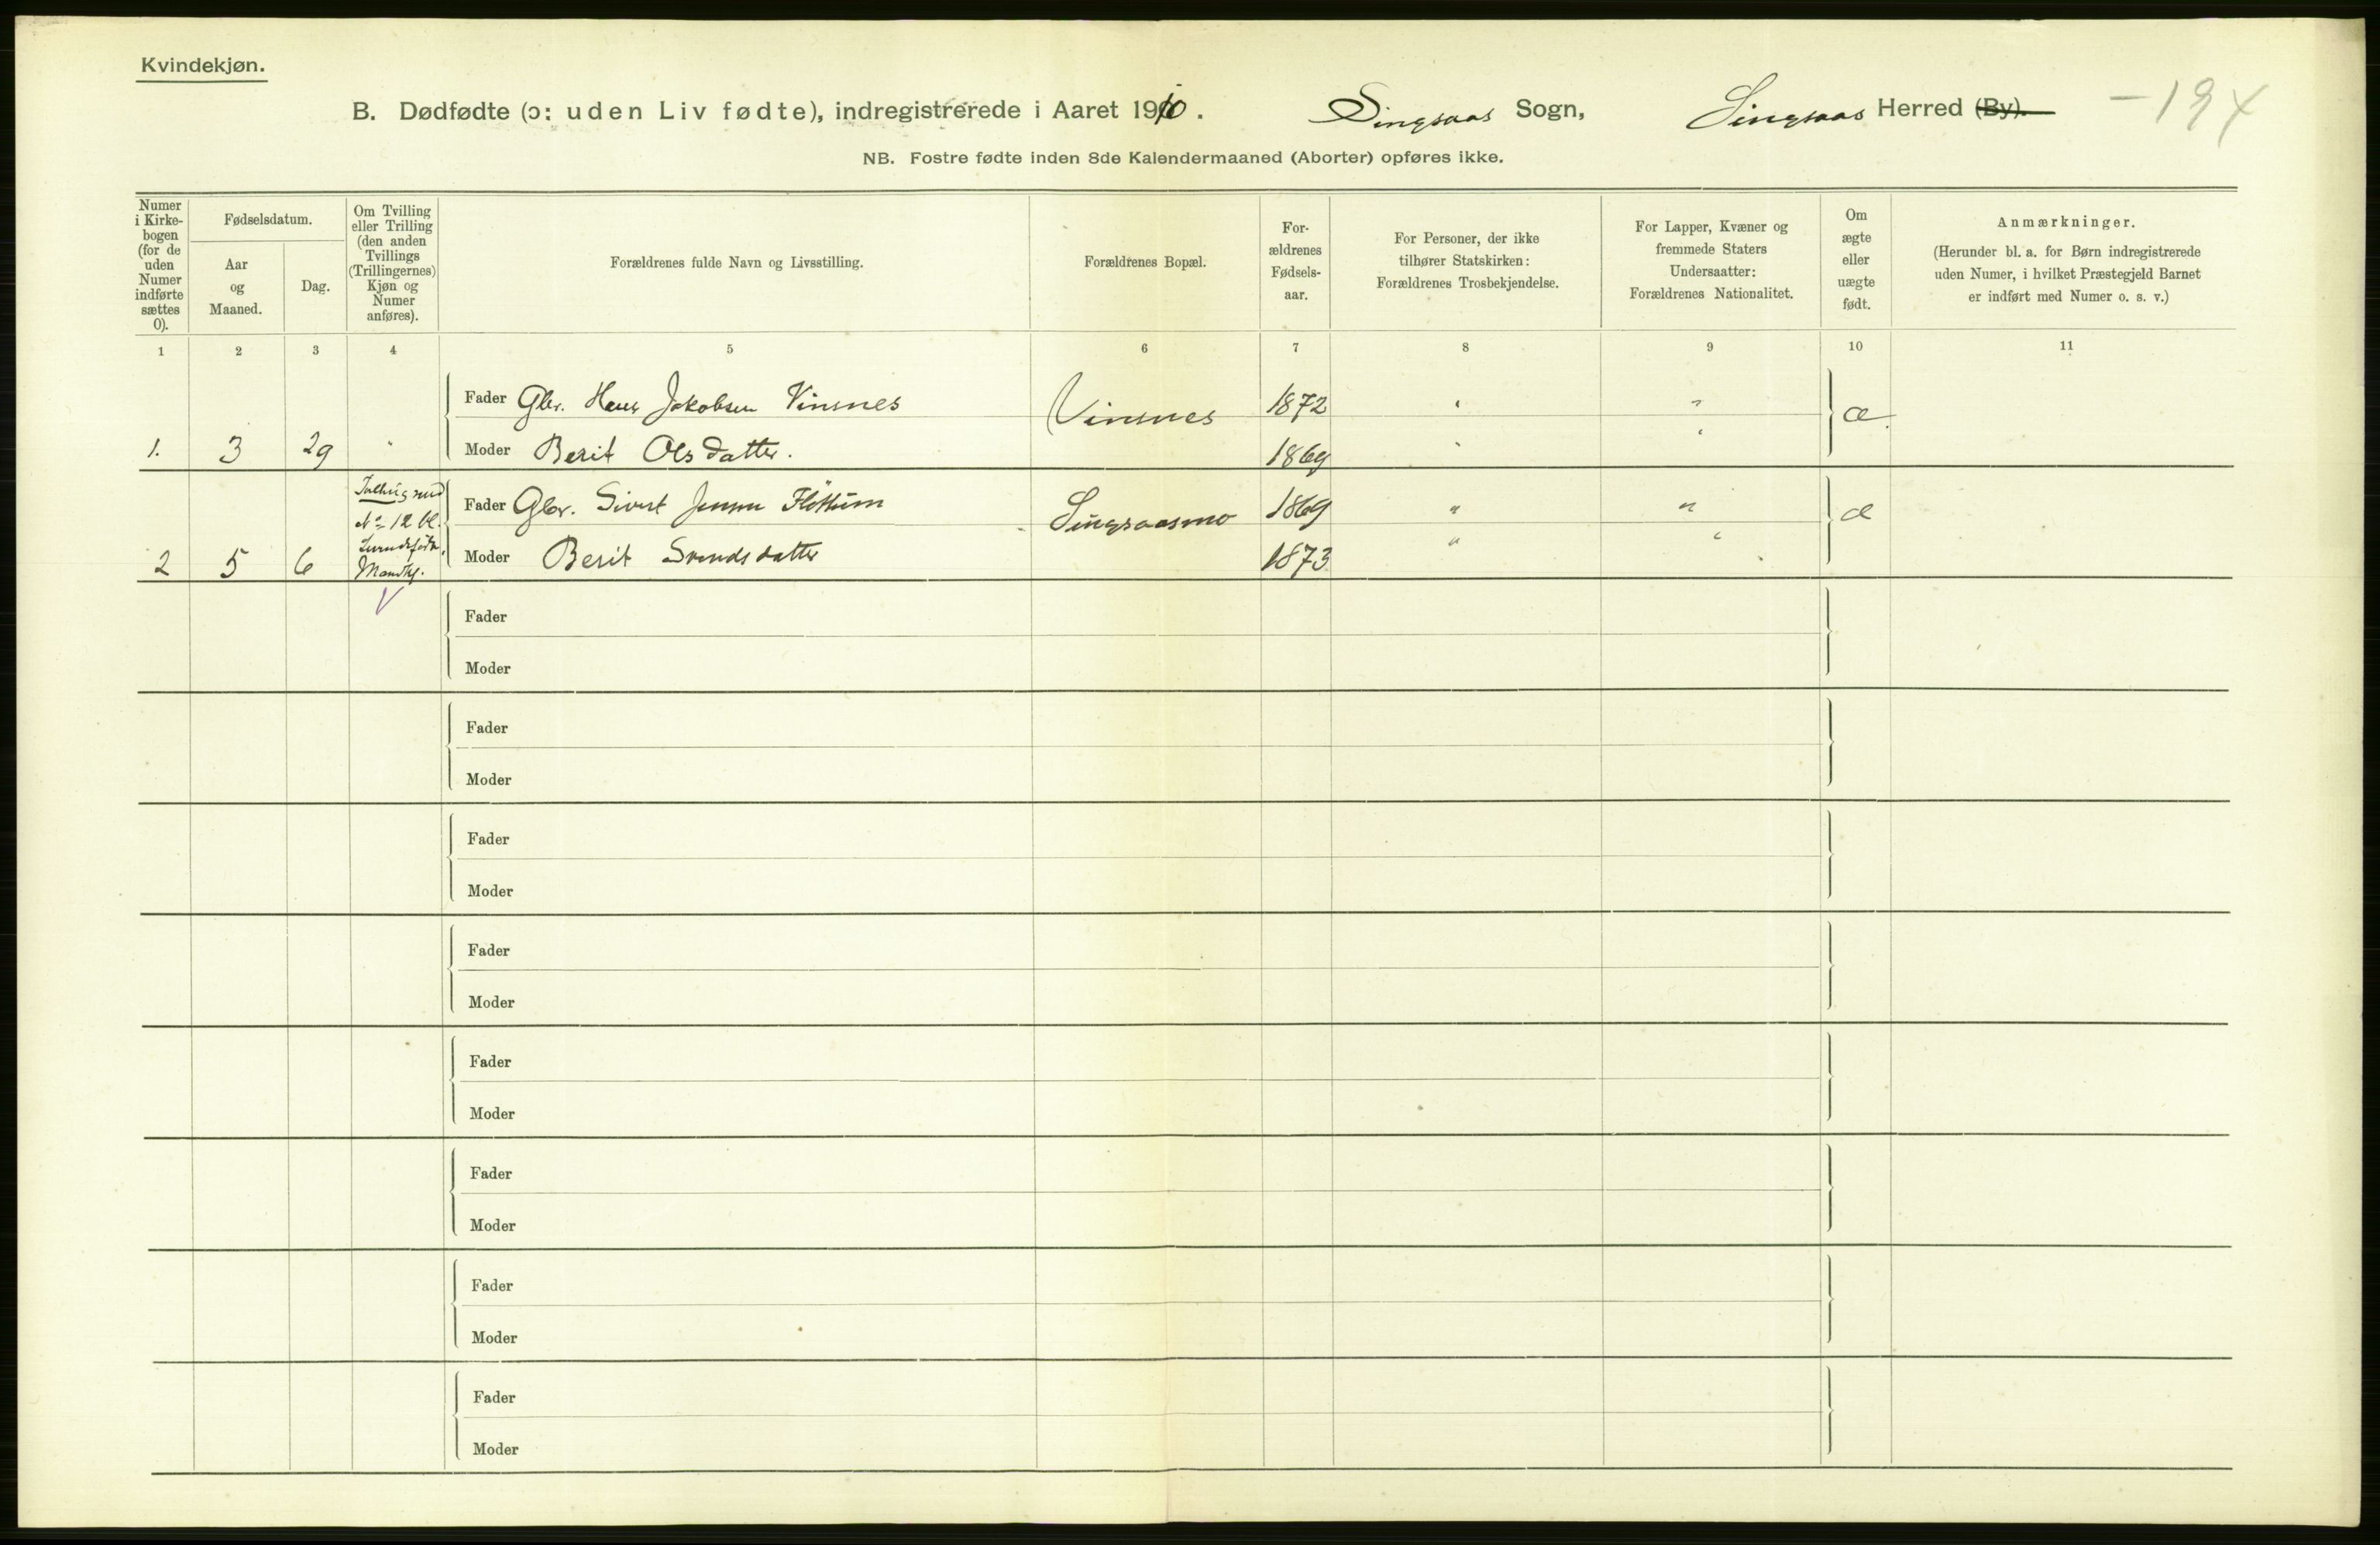 Kvindekjøn.
B. Dødfødte (ɔ: uden Liv fødte), indregistrerede i Aaret 1910. Singsaas Sogn, Singsaas Herred (By).
NB. Fostre fødte inden 8de Kalendermaaned (Aborter) opføres ikke.
Numer
i Kirke-
bogen
(for de
uden
Numer
indførte
sættes
0).
Fødselsdatum.
Aar
og
Maaned.
Dag.
Om Tvilling
eller Trilling
(den anden
Tvillings
(Trillingernes)
Kjøn og
Numer
anføres).
Forældrenes fulde Navn og Livsstilling.
Forældrenes Bopæl.
For-
ældrenes
Fødsels-
aar.
For Personer, der ikke
tilhører Statskirken:
Forældrenes Trosbekjendelse.
For Lapper, Kvæner og
fremmede Staters
Undersaatter:
Forældrenes Nationalitet.
Om
ægte
eller
uægte
født.
Anmærkninger.
(Herunder bl. a. for Børn indregistrerede
uden Numer, i hvilket Præstegjeld Barnet
er indført med Numer o. s. v.)
1 2 3 4 5 6 7 8 9 10 11
Fader Gbr. Hans Jakobsen Vinsnes Vinsnes 1872 " " æ.
1. 3 29 " Moder Berit Olsdatter. 1869 " "
Tvilling med
No 12 bl.
Levendefødte
Mandkj.
Fader Gbr. Sivert Jensen Fløttum Singsaasmo 1869 " " æ
2 5 6 Moder Berit Svendsdatter 1873 " "
Fader
Moder
Fader
Moder
Fader
Moder
Fader
Moder
Fader
Moder
Fader
Moder
Fader
Moder
Fader
Moder